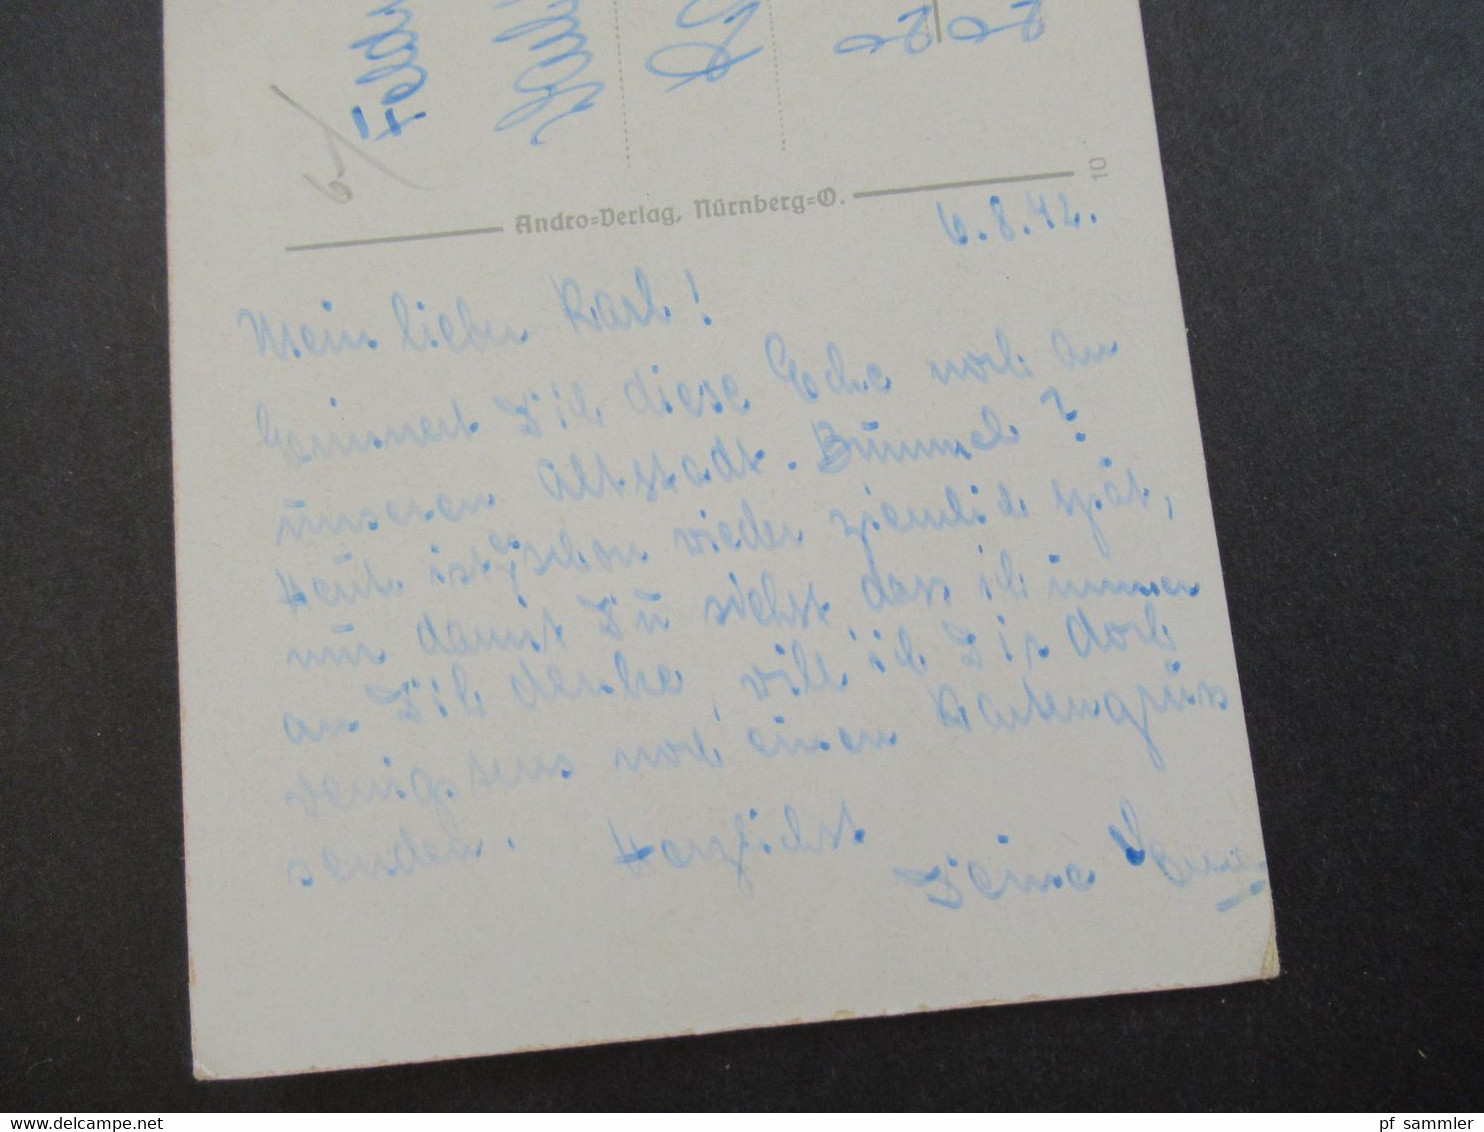 Feld
6/
Andro=Verlag, Nürnberg=O.
10
6.8.42.
Mein lieber Karl!
Erinnert Dich diese Ecke noch an
unseren Altstadt-Bummel?
Heute ist es schon wieder ziemlich spät,
nur damit Du siehst, dass ich immer
an Dich denke, will ich Dir doch
wenigstens noch einen Kartengruss
senden. Herzlichst
Deine
www.delcampe.net
pf_sammler